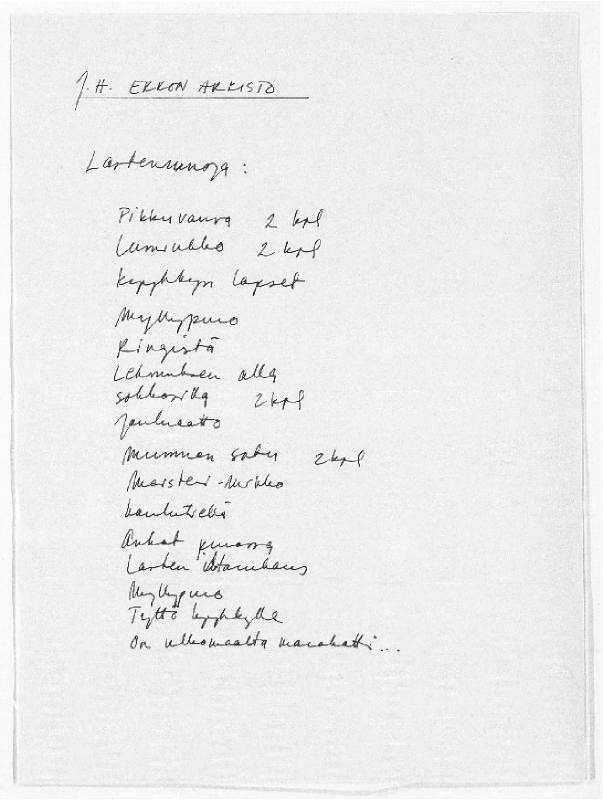 J.H. ERKON ARKISTO
Lastenrunoja:
Pikkuvauva 2 kpl
Lumiukko 2 kpl
Kyyhkyn lapset
Myllypuro
Ringistä
Lehmuksen alla
sokkosilla 2 kpl
Jouluaatto
Mummon satu 2 kpl
Maisteri-Mikko
koulutiellä
Ankat purossa
Lasten iltarukous
Myllypuro
Tyttö kyyhkylle
On ulkomaalta marakatti...